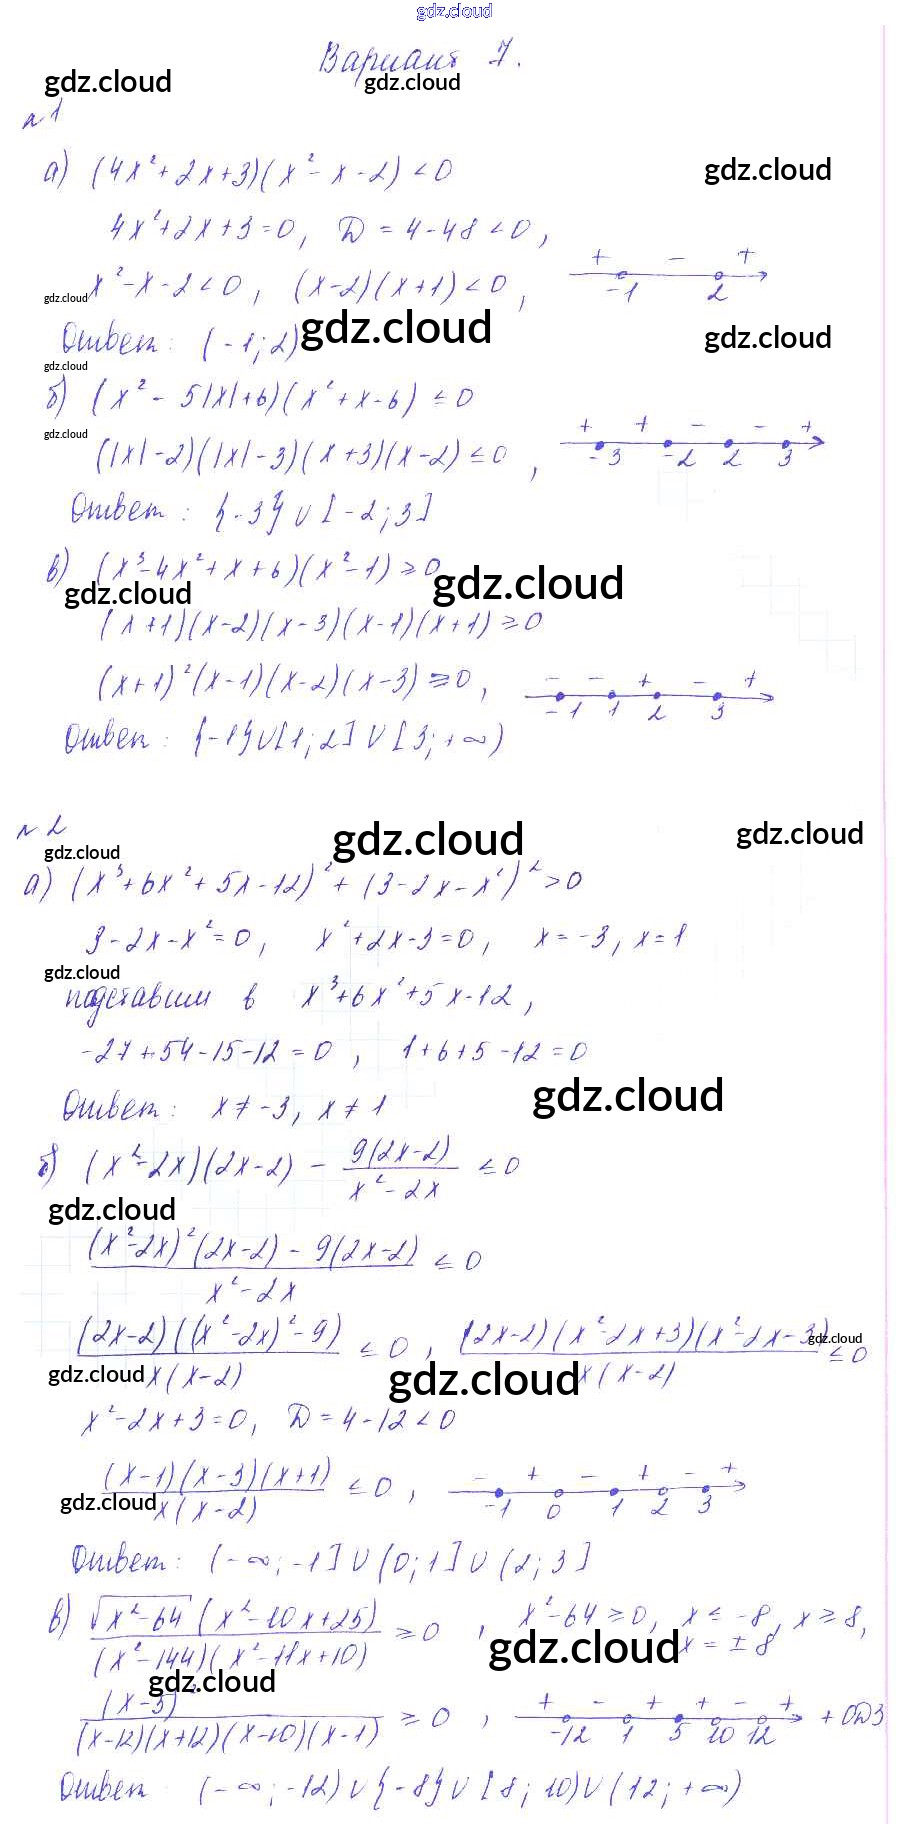 gdz.cloud
Вариант 7.
gdz.cloud gdz.cloud
№1
а) (4x² + 2x + 3)(x² - x - 2) < 0
gdz.cloud
4x² + 2x + 3 = 0, D = 4 - 48 < 0,
x² - x - 2 < 0, (x-2)(x+1) < 0,
+ - +
-1 2
gdz.cloud
Ответ: (-1; 2)
gdz.cloud gdz.cloud
gdz.cloud
б) (x² - 5|x| + 6)(x² + x - 6) ≤ 0
gdz.cloud
(|x| - 2)(|x| - 3)(x + 3)(x - 2) ≤ 0,
+ + - - +
-3 -2 2 3
Ответ: {-3} ∪ [-2; 3]
в) (x³ - 4x² + x + 6)(x² - 1) ≥ 0
gdz.cloud gdz.cloud
(x+1)(x-2)(x-3)(x-1)(x+1) ≥ 0
(x+1)²(x-1)(x-2)(x-3) ≥ 0,
- - + - +
-1 1 2 3
Ответ: {-1} ∪ [1; 2] ∪ [3; +∞)
№2
gdz.cloud gdz.cloud gdz.cloud
а) (x³ + 6x² + 5x - 12)² + (3 - 2x - x²)² > 0
3 - 2x - x² = 0, x² + 2x - 3 = 0, x = -3, x = 1
gdz.cloud
подставим в x³ + 6x² + 5x - 12,
-27 + 54 - 15 - 12 = 0, 1 + 6 + 5 - 12 = 0
gdz.cloud
Ответ: x ≠ -3, x ≠ 1
б) (x² - 2x)(2x - 2) - 9(2x-2)/(x² - 2x) ≤ 0
gdz.cloud
((x² - 2x)²(2x-2) - 9(2x-2))/(x² - 2x) ≤ 0
(2x-2)((x² - 2x)² - 9)/(x(x-2)) ≤ 0, (2x-2)(x² - 2x + 3)(x² - 2x - 3)/(x(x-2)) ≤ 0
gdz.cloud
gdz.cloud gdz.cloud
x² - 2x + 3 = 0, D = 4 - 12 < 0
(x-1)(x-3)(x+1)/(x(x-2)) ≤ 0,
- + - + - +
-1 0 1 2 3
gdz.cloud
Ответ: (-∞; -1] ∪ (0; 1] ∪ (2; 3]
в) √(x² - 64)(x² - 10x + 25)/((x² - 144)(x² - 11x + 10)) ≥ 0, x² - 64 ≥ 0, x ≤ -8, x ≥ 8,
x = ± 8
gdz.cloud
gdz.cloud
(x-5)²/((x-12)(x+12)(x-10)(x-1)) ≥ 0,
+ - + + - +
-12 1 5 10 12
+ ОДЗ
Ответ: (-∞; -12) ∪ {-8} ∪ [8; 10) ∪ (12; +∞)